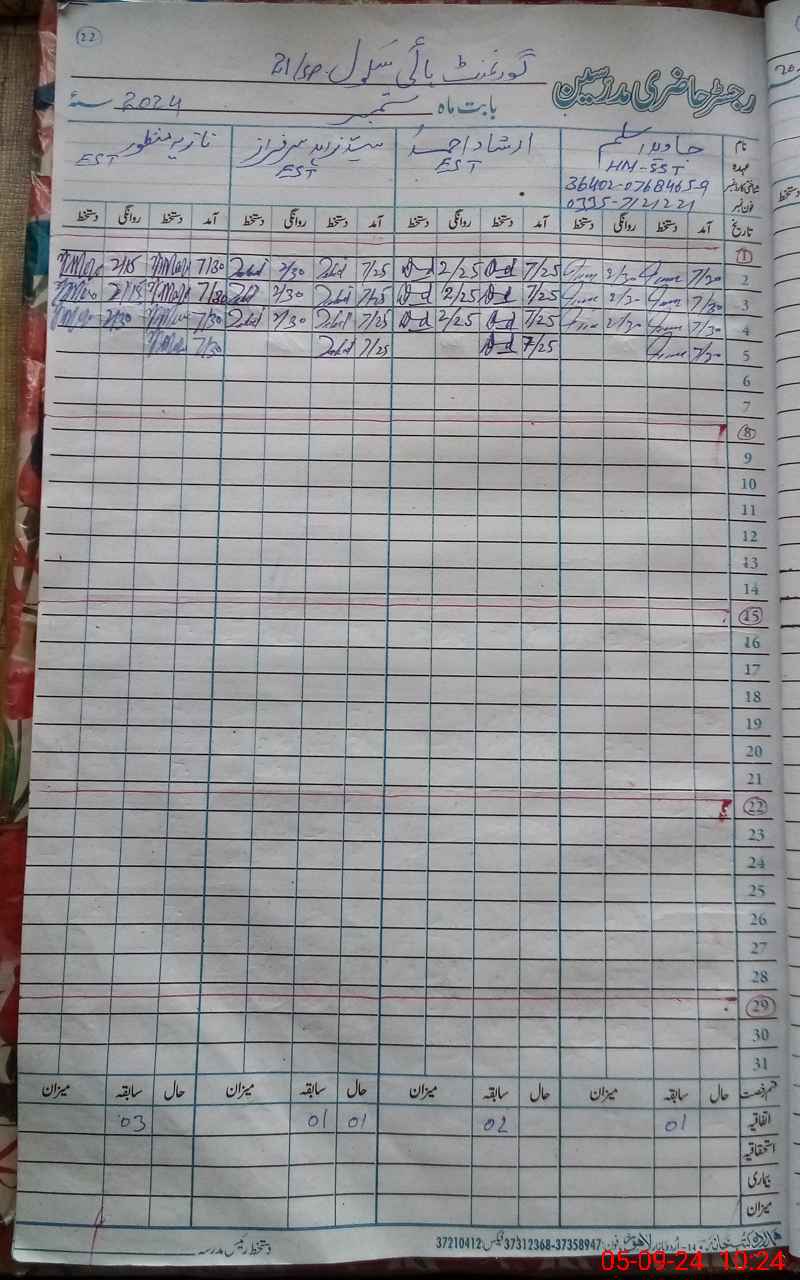 22
رجسٹر حاضری مدرسین
گورنمنٹ ہائی سکول 21/SP
بابت ماہ ستمبر 2024 سنۂ
نام جاوید اسلم ارشاد احمد سیدزاہد سرفراز نازیہ منظور
عہدہ HM-SST EST EST EST
شناختی کارڈ نمبر 36402-0768465-9
فون نمبر 0335-7121221
تاریخ آمد دستخط روانگی دستخط آمد دستخط روانگی دستخط آمد دستخط روانگی دستخط آمد دستخط روانگی دستخط
1
2 7/30 2/30 7/25 2/25 7/25 2/30 7/30 2/15
3 7/30 2/30 7/25 2/25 7/25 2/30 7/30 2/15
4 7/30 2/30 7/25 2/25 7/25 2/30 7/30 2/30
5 7/30 7/25 7/25 7/30
6
7
8
9
10
11
12
13
14
15
16
17
18
19
20
21
22
23
24
25
26
27
28
29
30
31
قسم رخصت حال سابقہ میزان حال سابقہ میزان حال سابقہ میزان حال سابقہ میزان
اتفاقیہ 01 02 01 01 03
استحقاقیہ
بیماری
میزان
فون: 37358947-37312368 فیکس: 37210412
دستخط رئیس مدرسہ
05-09-24 10:24